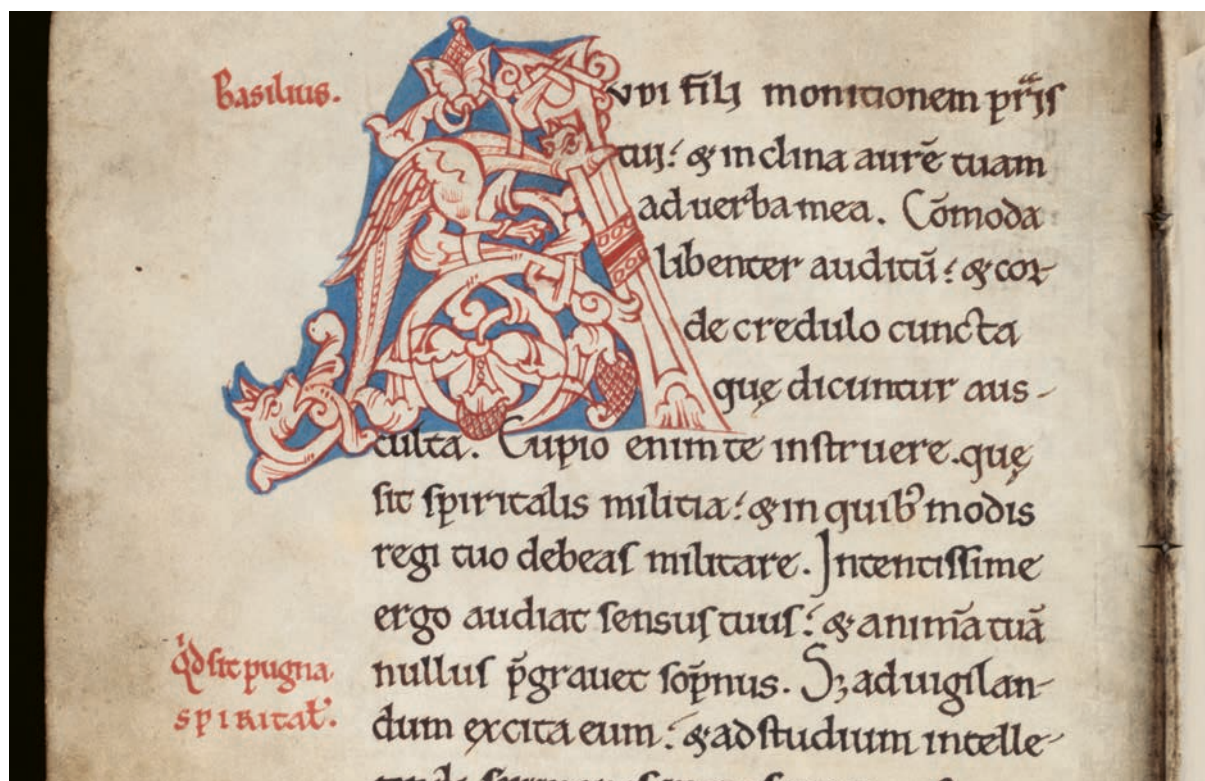 Basilius.
AVDI fili monitionem pr̃is
tui: & inclina aurẽ tuam
ad uerba mea. Cõmoda
libenter auditũ: & cor-
de credulo cuncta
quę dicuntur aus-
culta. Cupio enim te instruere. quę
sit spiritalis militia: & in quib' modis
regi tuo debeas militare. Intentissime
ergo audiat sensus tuus: & animã tuã
Qd sit pugna
spiritat̃.
nullus p̃grauet sop̃nus. Sꝫ ad uigilan-
dum excita eum: & ad studium intelle-